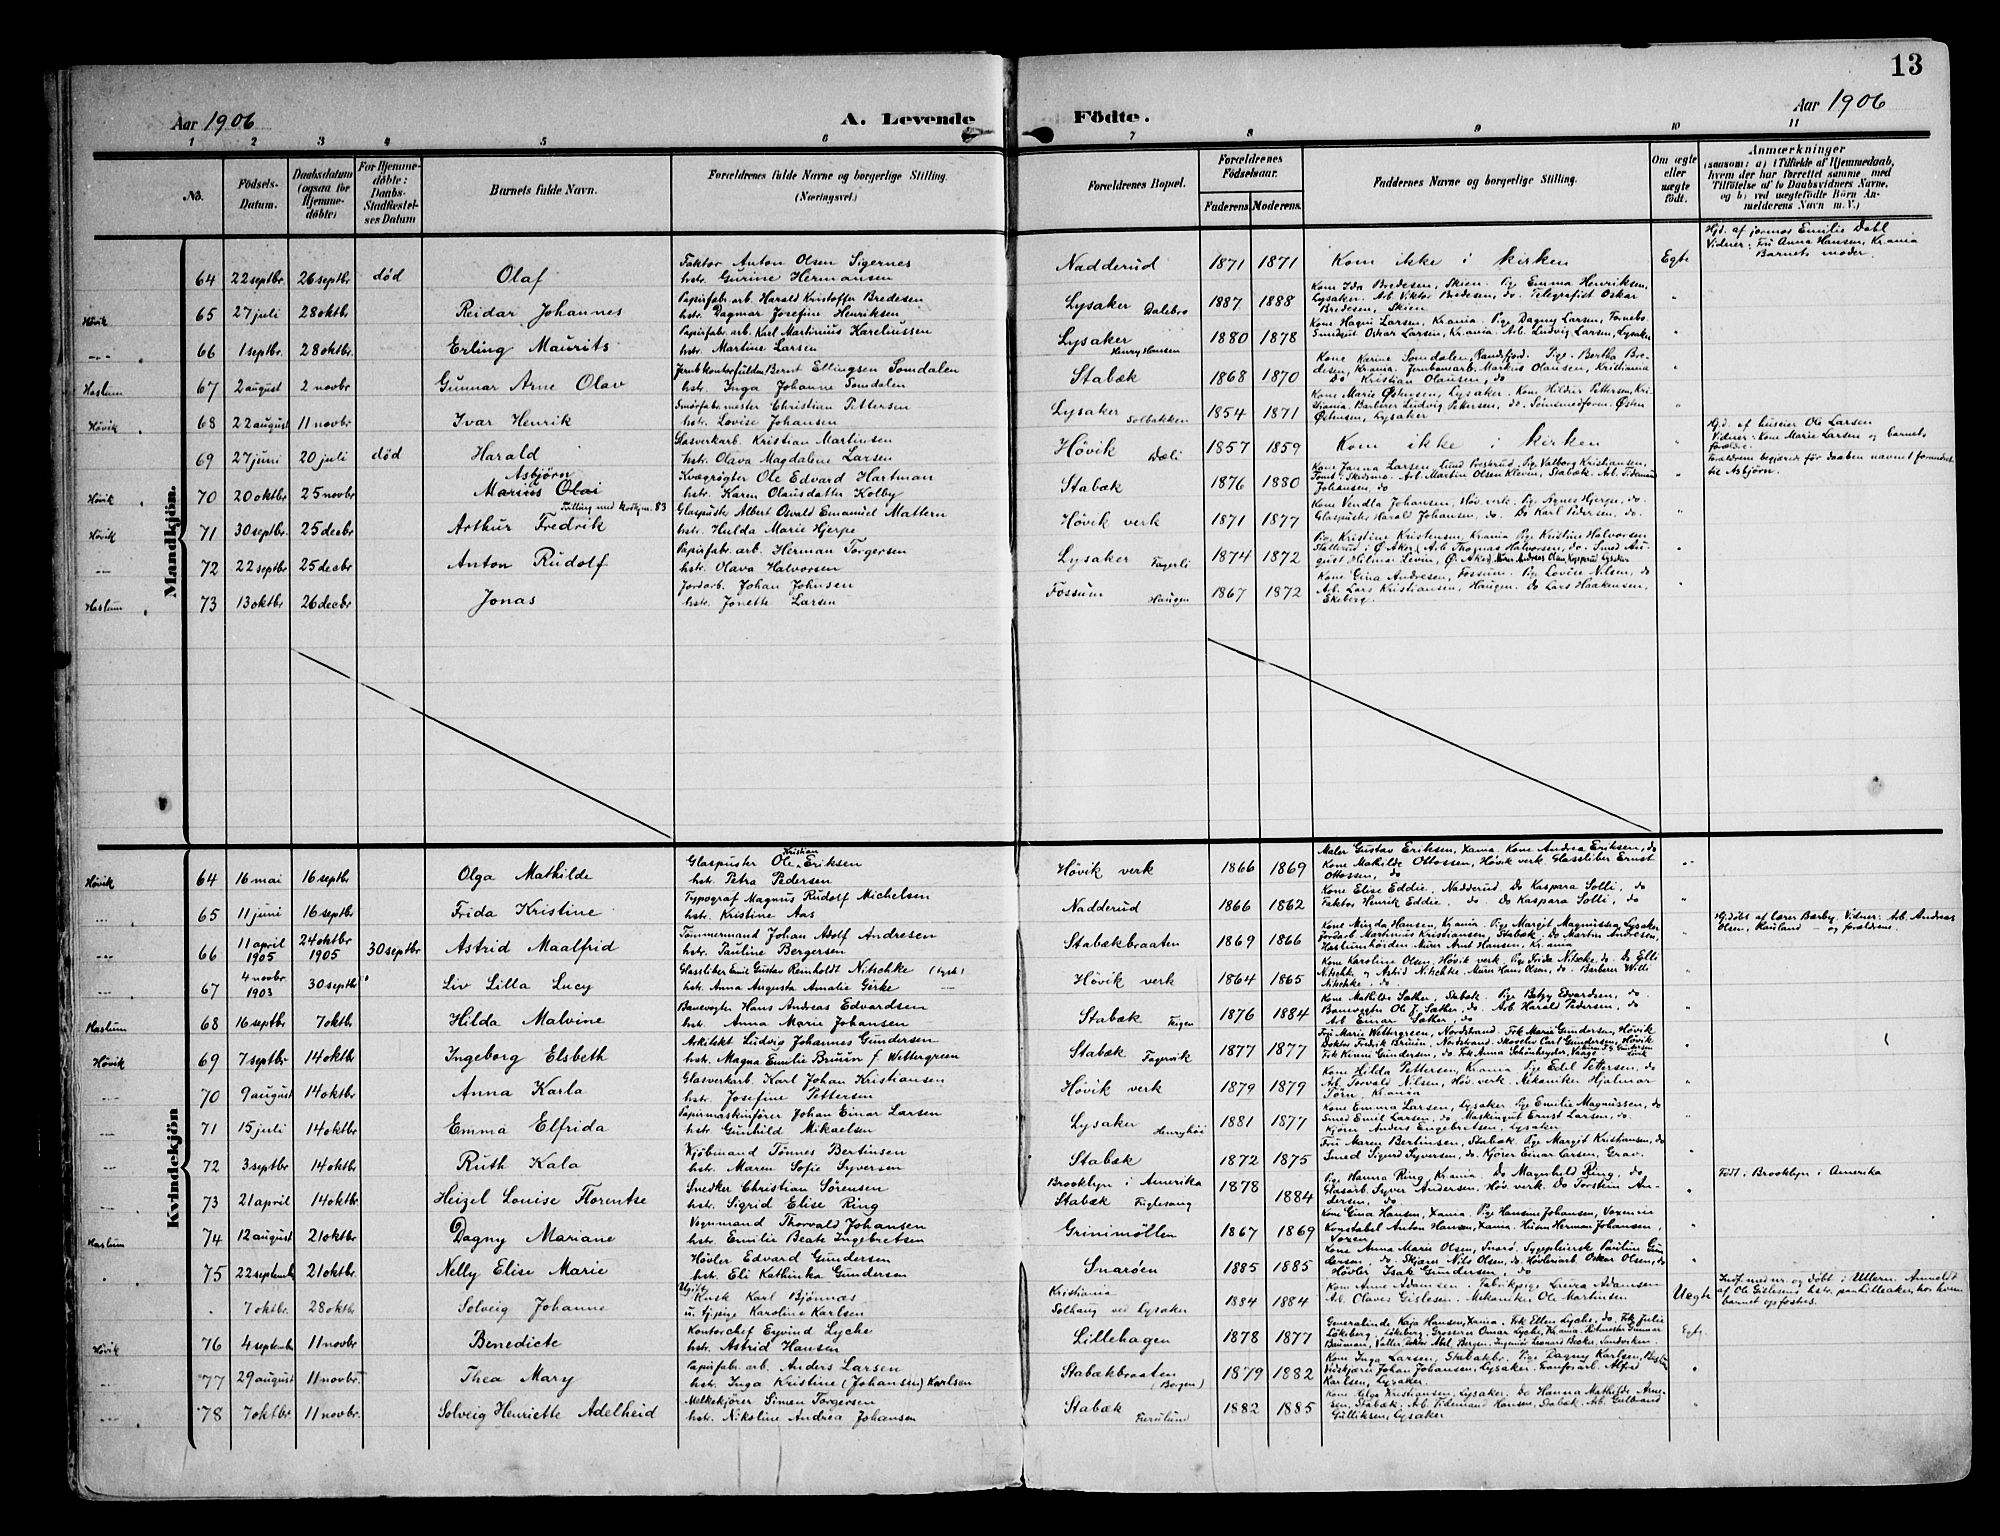 13
Aar 1906
A. Levende
Födte.
Aar 1906
1 2 3 4 5 6 7 8 9 10 11
No.
Födsels-Datum.
Daabsdatum (ogsaa for Hjemme-døbte)
For Hjemme-døbte: Daabs-Stadfæstelses Datum
Barnets fulde Navn.
Forældrenes fulde Navne og borgerlige Stilling. (Næringsvei.)
Forældrenes Bopæl.
Forældrenes Fødselsaar.
Faderens. Moderens.
Faddernes Navne og borgerlige Stilling.
Om ægte eller uægte födt.
Anmærkninger
(saasom: a) i Tilfælde af Hjemmedaab, hvem der har forrettet samme, med Tilføielse af to Daabsvidners Navne, og b) ved uægtefødte Börn Anmelderens Navn m. V.)
Mandkjön.
64 22 septbr. 26 septbr død Olaf
Faktor Anton Olsen Sigernes
hstr. Gurine Hermansen
Nadderud 1871 1871 Kom ikke i kirken Egte
Hjd. af jormor Emilie Dahl
Vidner: Fru Anna Hansen, Krania
Barnets moder.
Høvik 65 27 juli 28 oktbr. Reidar Johannes
Papirfab. arb. Harald Kristoffer Bredesen
hstr. Dagmar Josefine Henriksen
Lysaker Dalebro 1887 1888
Kone Ida Bredesen, Skien. Pige Emma Henriksen,
Lysaker. Arb. Viktor Bredesen, do. Telegrafist Oskar
Bredesen, Skien
66 1 septbr. 28 oktbr. Erling Maurits
Papirfabr. arb. Karl Martinius Kareliussen
hstr. Martine Larsen
Lysaker Henry Hansen 1880 1878
Kone Hagni Larsen, Krania. Pige Dagny Larsen, Fornebo.
Smedgut Oskar Larsen, Krania. Arb. Ludvig Larsen, Lysaker
Haslum 67 2 august 2 novbr. Gunnar Arne Olav
Jernb. kontorfuldm. Bernt Ellingsen Somdalen
hstr. Inga Johanne Somdalen
Stabæk 1868 1870
Kone Karine Somdalen, Randsfjord. Pige Bertha Bre-
desen, Krania. Jernbanearb. Markus Olausen, Kristiania
Do Kristian Olausen, do
Høvik 68 22 august 11 novbr. Ivar Henrik
Smörfabr. mester Christian Pettersen
hstr. Lovise Johansen
Lysaker Solbakken 1854 1871
Kone Marie Østnesen, Lysaker. Kone Hildur Pettersen, Kri-
stiania. Barberer Ludvig Pettersen, do. Sömsmedform. Østen
Østnesen, Lysaker
69 27 juni 20 juli død Harald
Glasverkarb. Kristian Martinsen
hstr. Olava Magdalene Larsen
Høvik Dæli 1857 1859 Kom ikke i kirken
Hjd. af huseier Ole Larsen
Vidner: Kone Marie Larsen og barnets
forældre.
Høvik 70 20 oktbr 25 novbr Asbjørn
Marius Olai
Kvægrøgter Ole Edvard Hartman
hstr. Karen Olausdatter Kolby
Stabæk 1876 1880
Kone Janna Larsen, Lund Presterud. Pige Valborg Kristiansen,
Tomt. Skedsmo. Arb. Martin Olsen Kleven, Stabæk. Arb. Tidemand
Johansen, do
Forældrene begjærede før daaben navnet forandret
til Asbjørn.
Høvik 71 30 septbr. 25 decbr Arthur Fredrik
Glaspuste Albert Osvald Emanuel Mattern
hstr. Hulda Marie Hjerpe
Høvik verk 1871 1877
Kone Vendla Johansen, Høv. verk. Pige Agnes Hjerpe, do.
Glaspuster Harald Johansen, do. Do Karl Pedersen, do.
72 22 septbr 25 decbr Anton Rudolf
Papirfabr. arb. Herman Torgersen
hstr. Olava Halvorsen
Lysaker Fagerli 1874 1872
Pige Kristine Kristensen, Krania. Pige Kristine Halvorsen
Slatterud i Ø. Aker. Arb. Thomas Halvorsen, do. Smed Au-
gust Hilmar Levin, Ø. Aker.
Haslum 73 13 oktbr 26 decbr Jonas
Jordarb. Johan Johnsen
hstr. Jonette Larsen
Fossum Haugen 1867 1872
Kone Gina Andresen, Fossum. Pige Lovise Nilsen, do.
Arb. Lars Kristiansen, Haugen. Do Lars Haakensen,
Ekeberg.
Kvindekjön
Høvik 64 16 mai 16 septbr Olga Mathilde
Glaspuster Ole Kristian Eriksen
hstr. Petra Pedersen
Høvik verk 1866 1869
Maler Gustav Eriksen, Xania. Kone Andrea Eriksen, do
Kone Mathilde Ottossen, Høvik verk. Glassliber Ernst
Ottossen, do
65 11 juni 16 septbr Frida Kristine
Typograf Magnus Rudolf Michelsen
hstr. Kristine Aas
Nadderud 1866 1862
Kone Elise Eddie, Nadderud. Do Kaspara Solli, do
Faktor Henrik Eddie, do. Do Kaspara Solli, do
66 11 april 1905 24 oktbr 1905 30 septbr Astrid Maalfrid
Tömmermand Johan Adolf Andresen
hstr. Pauline Bergersen
Stabækbraaten 1869 1866
Kone Minda Hansen, Krania. Pige Margit Magnussen, Lysaker
Jordarb. Martinius Kristiansen, Stabæk. Do Martin Andresen,
Haslumhöiden. Murer Arnt Hansen, Krania
Hj.døbt af lærer Barby. Vidner: Arb. Andreas
Olsen, Rauland – og forældrene.
67 4 novbr 1903 30 septbr Liv Lilla Lucy
Glassliber Emil Gustav Reinholdt Nitschke (tysk)
hstr. Anna Augusta Amalie Gerke
Høvik verk 1864 1865
Kone Karoline Olsen, Høvik verk. Pige Frida Nitscke, do. Do Elli
Nitschke og Astrid Nitschke. Murer Hans Olsen, do. Barberer Willi
Nitschke, do.
Haslum 68 16 septbr 7 oktbr. Hilda Malvine
Banevogter Hans Andreas Edvardsen
hstr. Anna Marie Johansen
Stabæk Teigen 1876 1884
Kone Mathilde Sæther, Stabæk. Pige Betzy Edvardsen, do
Banevogter Ole J. Sæther, do. Arb. Harald Pedersen, do
Arb. Einar Sæther, do
Høvik 69 7 septbr 14 oktbr Ingeborg Elsbeth
Arkitekt Ludvig Johannes Gundersen
hstr. Magna Emilie Bruun f. Wettergreen
Stabæk Fagervik 1877 1877
Fru Marie Wettergreen, Nordstrand. Frk Marie Gundersen, Høvik
Doktor Fredrik Bruun, Nordstrand. Skoelev Carl Gundersen, Høvik
Frk Kirsti Gundersen, do. Frk Anna Schönheyder, Vaage
70 9 august 14 oktbr Anna Karla
Glasverkarb. Karl Johan Kristiansen
hstr. Josefine Pettersen
Høvik verk 1879 1879
Kone Hilda Pettersen, Krania. Pige Edil Pettersen, do
Arb. Torvald Nilsen, Høv. verk. Mekaniker Hjalmar
Törn, Krania
71 15 juli 14 oktbr Emma Elfrida
Papirmaskinfører Johan Einar Larsen
hstr. Gunhild Mikaelsen
Lysaker Henryhöi 1881 1877
Kone Emma Larsen, Lysaker. Pige Emilie Magnussen, do
Smed Emil Larsen, do. Maskingut Ernst Larsen, do.
Kjører Anders Engebretsen, Lysaker
72 3 septbr 14 oktbr Ruth Kala
Kjöbmand Tönnes Bertinsen
hstr. Maren Sofie Syversen
Stabæk 1872 1875
Fru Maren Bertinsen, Stabæk. Pige Margit Kristiansen, do
Smed Sigurd Syversen, do. Kjører Einar Larsen, Grav.
73 21 april 14 oktbr Heizel Louise Florentse
Snedker Christian Sörensen
hstr. Sigrid Elise Ring
Brooklyn i Amerika
Stabæk Fuglesang 1878 1884
Pige Hanna Ring, Krania. Do Magnhild Ring, do
Glasarb. Syver Andersen, Høv. verk. Do Torstein An-
dersen, do
Født i Brooklyn i Amerika
Haslum 74 12 august 21 oktbr. Dagny Mariane
Vognmand Thorvald Johansen
hstr. Emilie Beate Ingebretsen
Grinimöllen 1867 1869
Kone Gina Hansen, Xania. Pige Hansine Johansen, Voxenlie
Konstabel Anton Hansen, Xania. Husm Herman Johansen,
Voxen
75 22 septembr 21 oktbr. Nelly Elise Marie
Høvler Edvard Gundersen
hstr. Eli Kathinka Gundersen
Snarøen 1885 1885
Kone Anna Marie Olsen, Snarø. Sygepleierske Pauline Gun-
dersen, do. Skjærer Nils Olsen, do. Høvleriarb. Oskar Olsen, do
Høvler Isak Gundersen, do
7 oktbr. 28 oktbr Solveig Johanne
Ugift
Kusk Karl Bjønnas
u. tj.pige Karoline Karlsen
Kristiania
Solhaug ved Lysaker 1884 1884
Kone Anne Adamsen. Fabrikpige Luira Adamsen
Arb. Olaves Gislesen. Mekaniker Ole Martinsen
Uægte
Indf. med nr. og døbt i Ullern. Anmeldt
af Ole Gislesens hstr. paa Lilleaker, hos hvem
barnet opfostres.
Høvik 76 4 septembr 11 novbr Benedicte
Kontorchef Eyvind Lyche
hstr. Astrid Hansen
Lillehagen 1878 1877
Generalinde Kaja Hansen, Xania. Frk Ellen Lyche, do. Frk Julie
Lökeberg, Lökeberg. Grosserer Omar Lyche, Krania. Ritmester Gunnar
Bauman, Valler. Doktor Abel, Bergen. Ingeniör Leonard Becker, Sandviken
Egte.
77 29 august 11 novbr. Thea Mary
Papirfabr. arb. Anders Larsen
hstr. Inga Kristine (Johansen) Karlsen
Stabækbraaten (Borgen) 1879 1882
Kone Inga Larsen, Stabækbr. Pige Dagny Karlsen,
Vedskjærer Johan Johansen, Lysaker. Alfred
Karlsen, Lysaker.
78 7 oktbr. 11 novbr Solveig Henriette Adelheid
Melkekjører Simen Torgersen
hstr. Nikoline Andrea Johansen
Stabæk Furulund 1882 1885
Kone Olga Kristiansen, Lysaker. Do Hanna Mathilde Arne-
sen, Stabæk. Arb. Tidemand Hansen, Stabæk. Arb. Gulbrand
Gulliksen, Lysaker